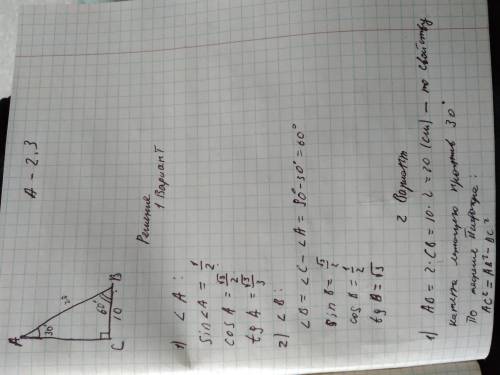 A – 2,3
A
30°
23
60°
B
10
C
Решение
1 Вариант
1) ∠A:
sin∠A = 1/2
cos A = √3/2
tg A = √3/3
2) ∠B:
∠B = ∠C – ∠A = 90° – 30° = 60°
sin B = √3/2
cos B = 1/2
tg B = √3
2 Вариант
1) AB = 2 · CB = 10 · 2 = 20 (см) – по свойству
катета лежащего против 30°
По теореме Пифагора:
AC² = AB² – BC²